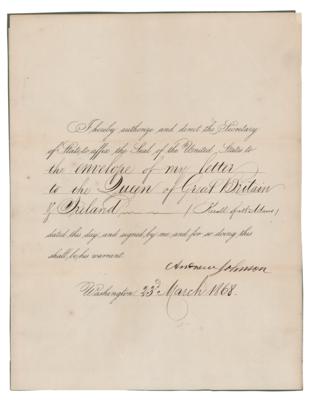 I hereby authorize and direct the Secretary
of State to affix the Seal of the United States to
the envelope of my letter
to the Queen of Great Britain
& Ireland (Recall of Mr Adams)
dated this day, and signed by me and for so doing this
shall be his warrant.
Andrew Johnson
Washington 23d March 1868.